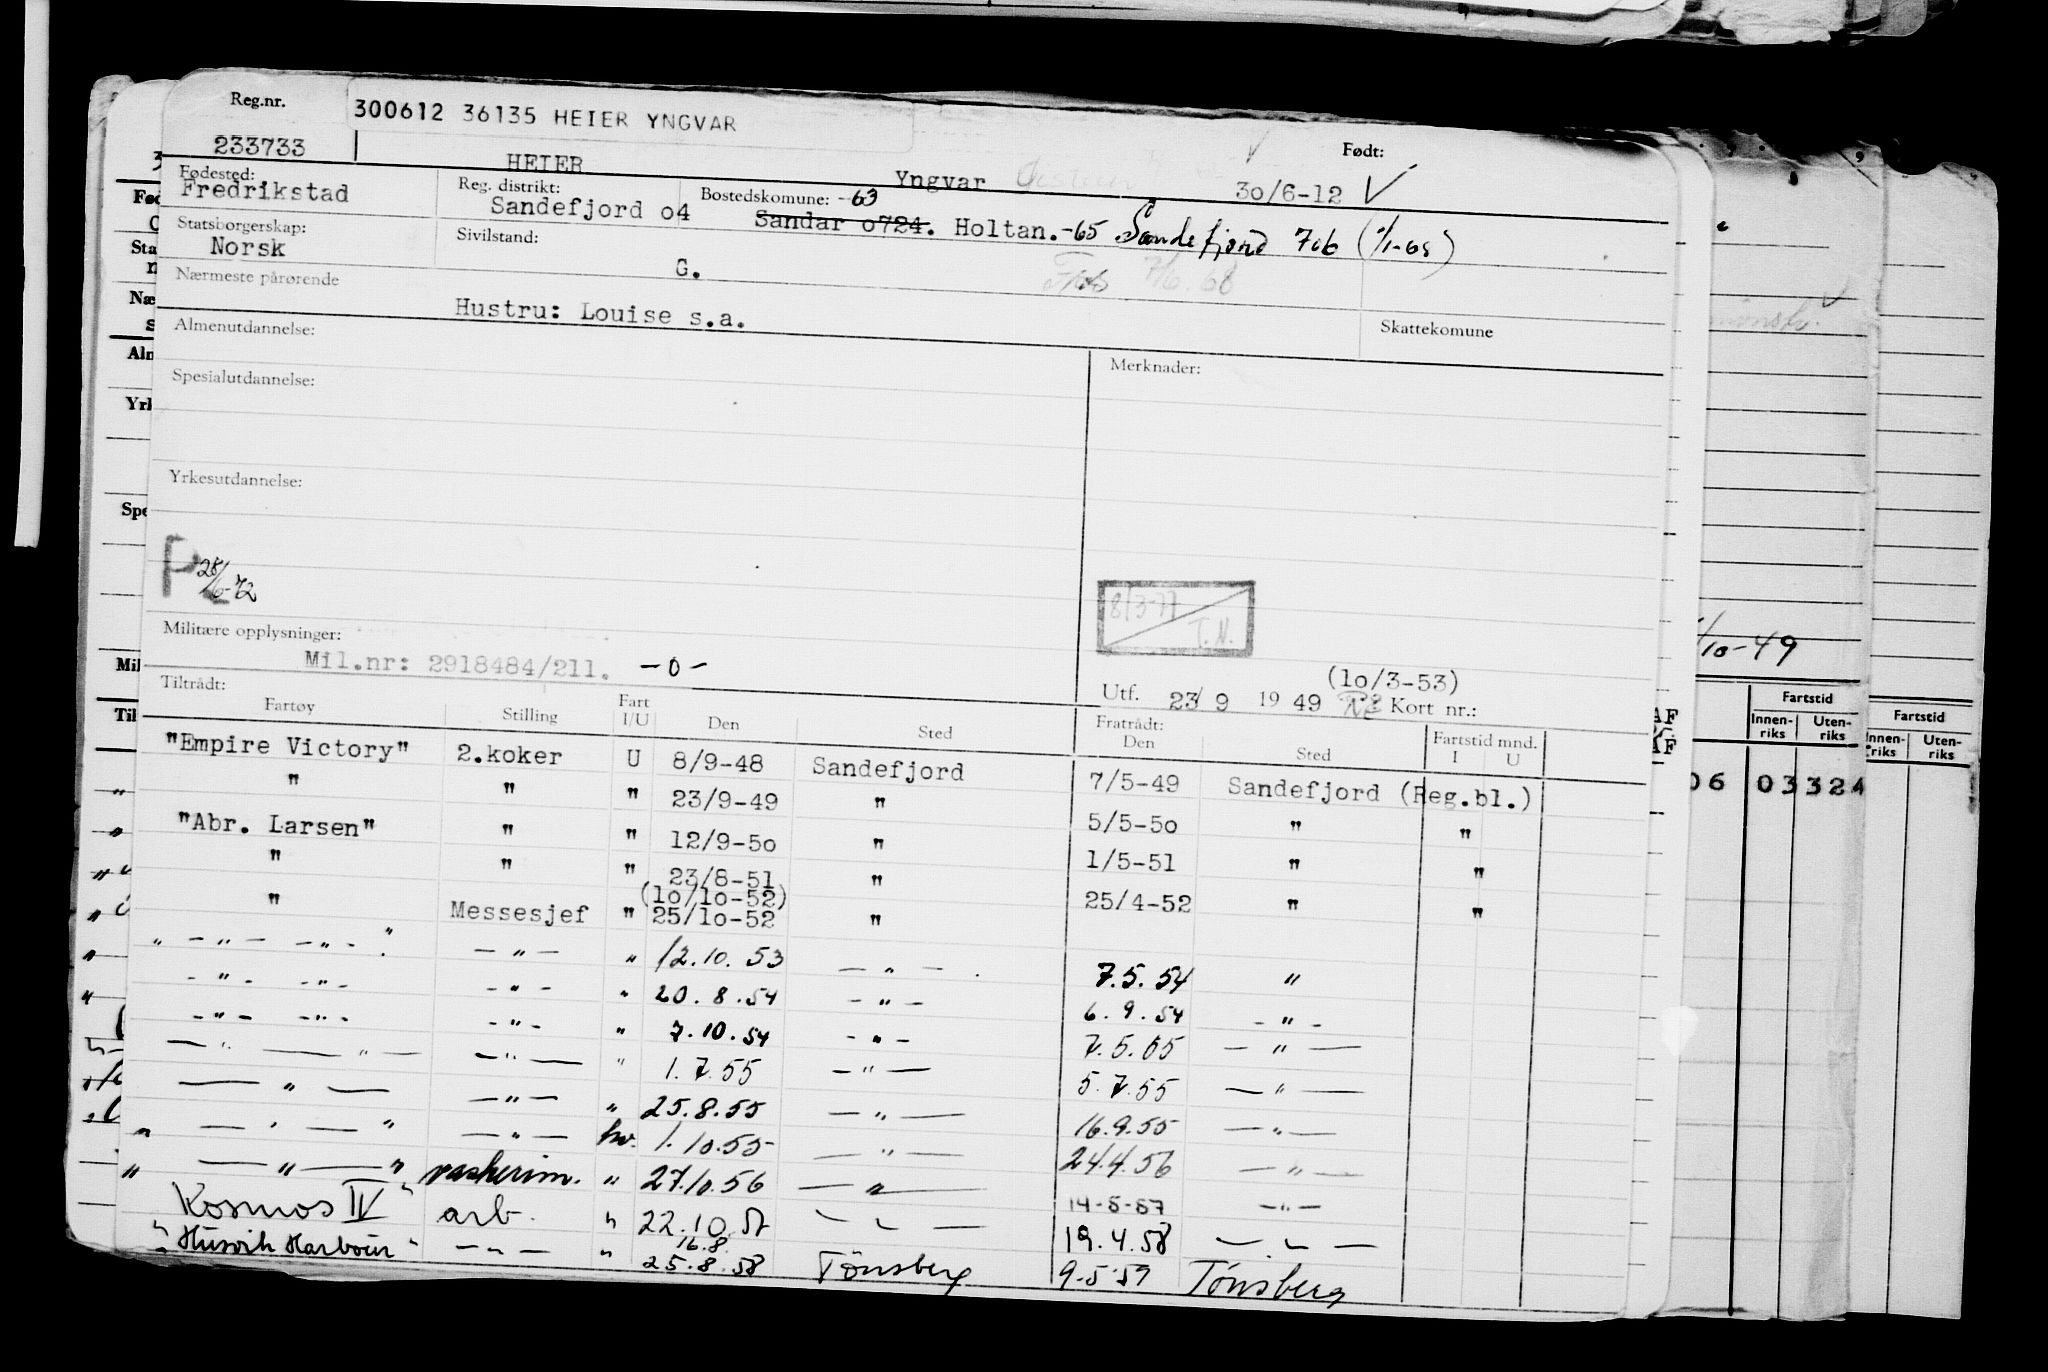 Reg.nr.
300612 36135 HEIER YNGVAR
233733
HEIER Yngvar
Født:
30/6-12 ✓
Fødested:
Fredrikstad
Reg. distrikt:
Sandefjord o4
Bostedskomune: -63
Sandar o724. Holtan. -65 Sandefjord 706 (1/1-68)
Statsborgerskap:
Norsk
Sivilstand:
G.
7/6.68
Nærmeste pårørende
Hustru: Louise s.a.
Skattekomune
Almenutdannelse:
Merknader:
Spesialutdannelse:
Yrkesutdannelse:
P 28/6-72
8/3-77
T.N.
Militære opplysninger:
Mil.nr: 2918484/211. -0-
(1o/3-53)
Utf. 23/9 19 49 Kort nr.:
Tiltrådt:
Fartøy Stilling Fart I/U Den Sted Fratrådt: Den Sted Fartstid mnd. I U
"Empire Victory" 2.koker U 8/9-48 Sandefjord 7/5-49 Sandefjord (Reg.bl.)
" " " 23/9-49 " 5/5-5o " "
"Abr. Larsen" " " 12/9-5o " 1/5-51 " "
" " " 23/8-51 " 25/4-52 " "
(1o/1o-52)
" Messesjef " 25/1o-52 "
" - " - - " - " - " - " 12.10.53 - " - 7.5.54 "
- " - - " - - " - " 20.8.54 - " - 6.9.54 - " -
- " - - " - - " - " 7.10.54 - " - 7.5.55 - " -
- " - " - - " - " 1.7.55 - " - 5.7.55 - " -
- " - - " - " 25.8.55 - " - 16.9.55 - " -
" - " - " - " - hv. 1.10.55 - " - 24.4.56 - " -
" - " - " vaskerim. " 27.10.56 - " - 14-5-57 - " -
"Kosmos IV" arb. " 22.10.57 - " - 19.4.58 - " -
16.8.
"Husvik Harbour" - " - " 25.8.58 Tønsberg 9-5-59 Tønsberg
/10-49
Fartstid
Innen-riks Uten-riks
Fartstid
Innen-riks Uten-riks
06 03 324